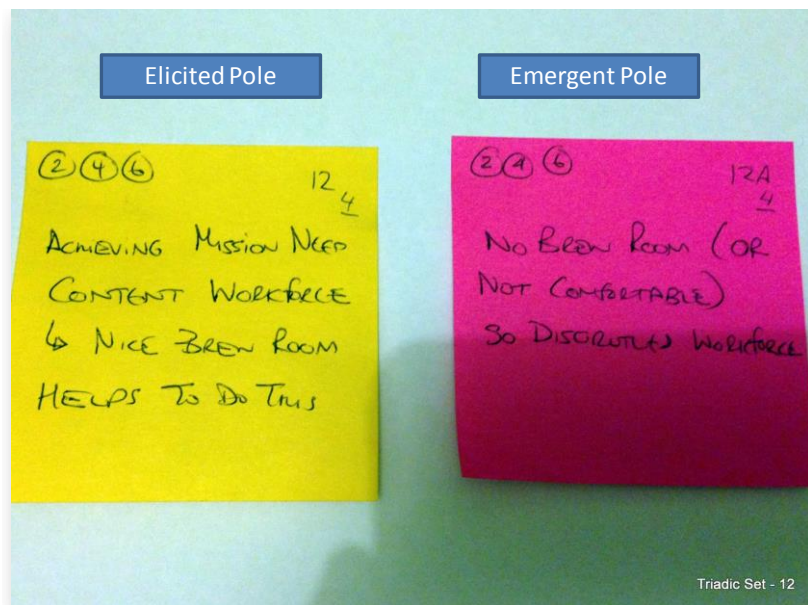 Elicited Pole
Emergent Pole
2 4 6
12
4
ACHIEVING MISSION NEED
CONTENT WORKFORCE
↳ NICE BREW ROOM
HELPS TO DO THIS
2 4 6
12A
4
NO BREW ROOM (OR
NOT COMFORTABLE)
SO DISGRUTLED WORKFORCE
Triadic Set - 12